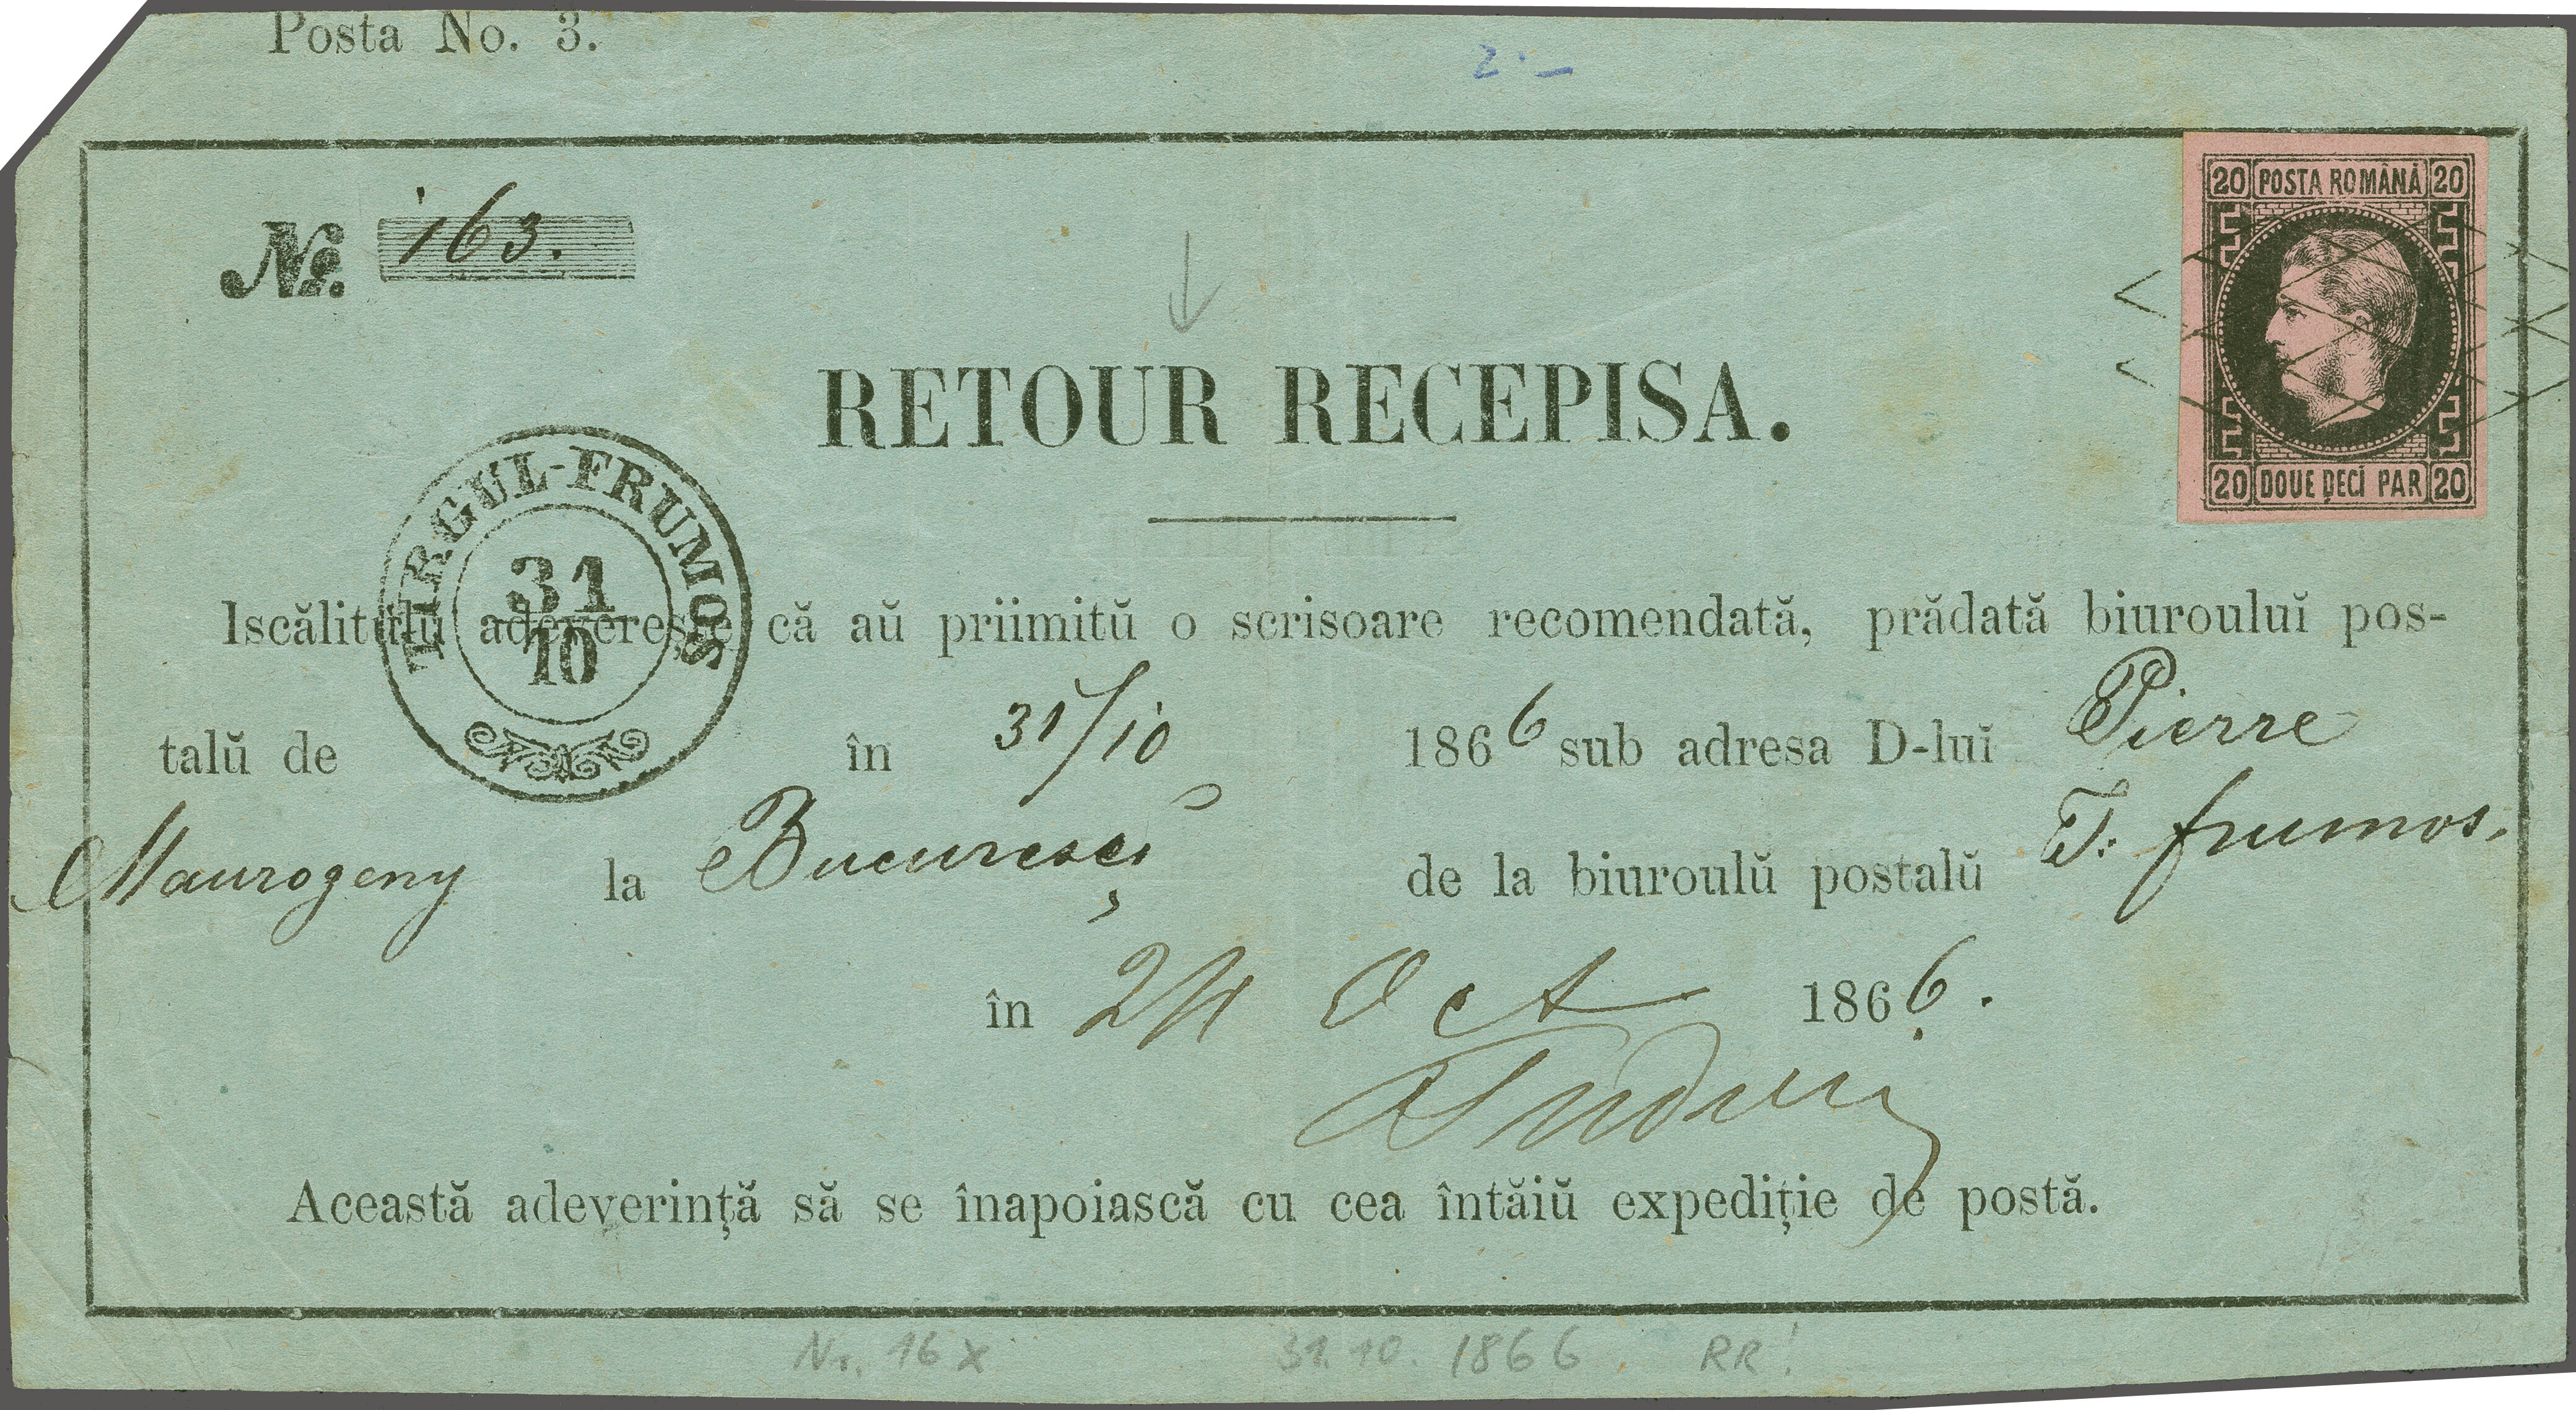 Posta No. 3.
2.–
No. 163.
20 POSTA ROMÂNĂ 20
20 DOUE DECI PAR 20
RETOUR RECEPISA.
TÂRGUL-FRUMOS
31
10
Iscălitulŭ adeverește că aŭ priimitŭ o scrisoare recomendată, prădată biurouluĭ pos-
talŭ de în 31/10 1866 sub adresa D-luĭ Pierre
Maurogeny la Bucuresci de la biuroulŭ postalŭ T: frumos.
în 24 Oct 1866.
Această adeverință să se înapoiască cu cea întăiŭ expediție de postă.
Nr. 16x 31.10.1866. RR!